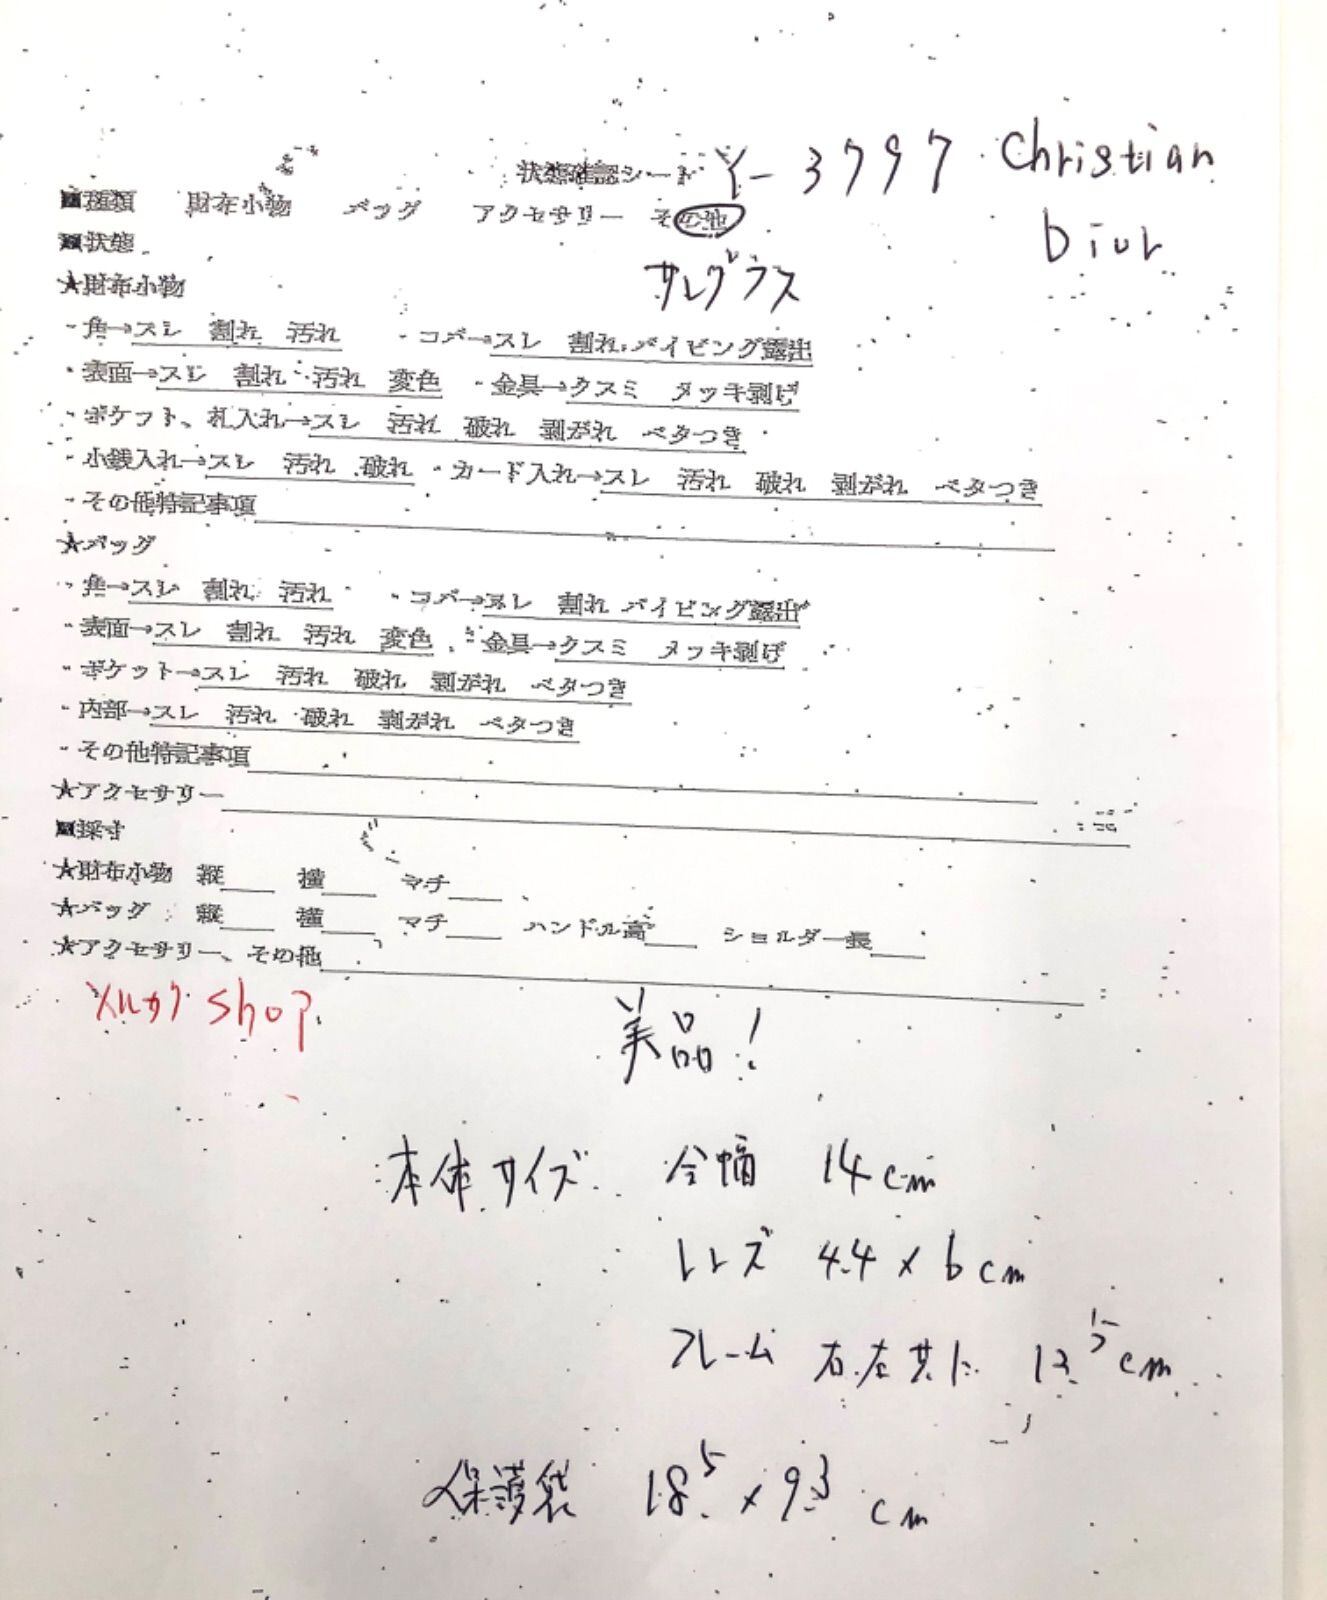 状態確認シート Y-3797 Christian
Dior
■種類 財布小物 バッグ アクセサリー その他
■状態
サングラス
★財布小物
・角→スレ 割れ 汚れ ・コバ→スレ 割れ パイピング露出
・表面→スレ 割れ 汚れ 変色 ・金具→クスミ メッキ剥げ
・ポケット、札入れ→スレ 汚れ 破れ 剥がれ ベタつき
・小銭入れ→スレ 汚れ 破れ ・カード入れ→スレ 汚れ 破れ 剥がれ ベタつき
・その他特記事項
★バッグ
・角→スレ 割れ 汚れ ・コバ→スレ 割れ パイピング露出
・表面→スレ 割れ 汚れ 変色 ・金具→クスミ メッキ剥げ
・ポケット→スレ 汚れ 破れ 剥がれ ベタつき
・内部→スレ 汚れ 破れ 剥がれ ベタつき
・その他特記事項
★アクセサリー
■採寸
★財布小物 縦 横 マチ
★バッグ 縦 横 マチ ハンドル高 ショルダー長
★アクセサリー、その他
メルカリ shop
美品!
本体サイズ 全幅 14cm
レンズ 4.4×6cm
フレーム 右左共に 13.5cm
保護袋 18.5×9.3cm